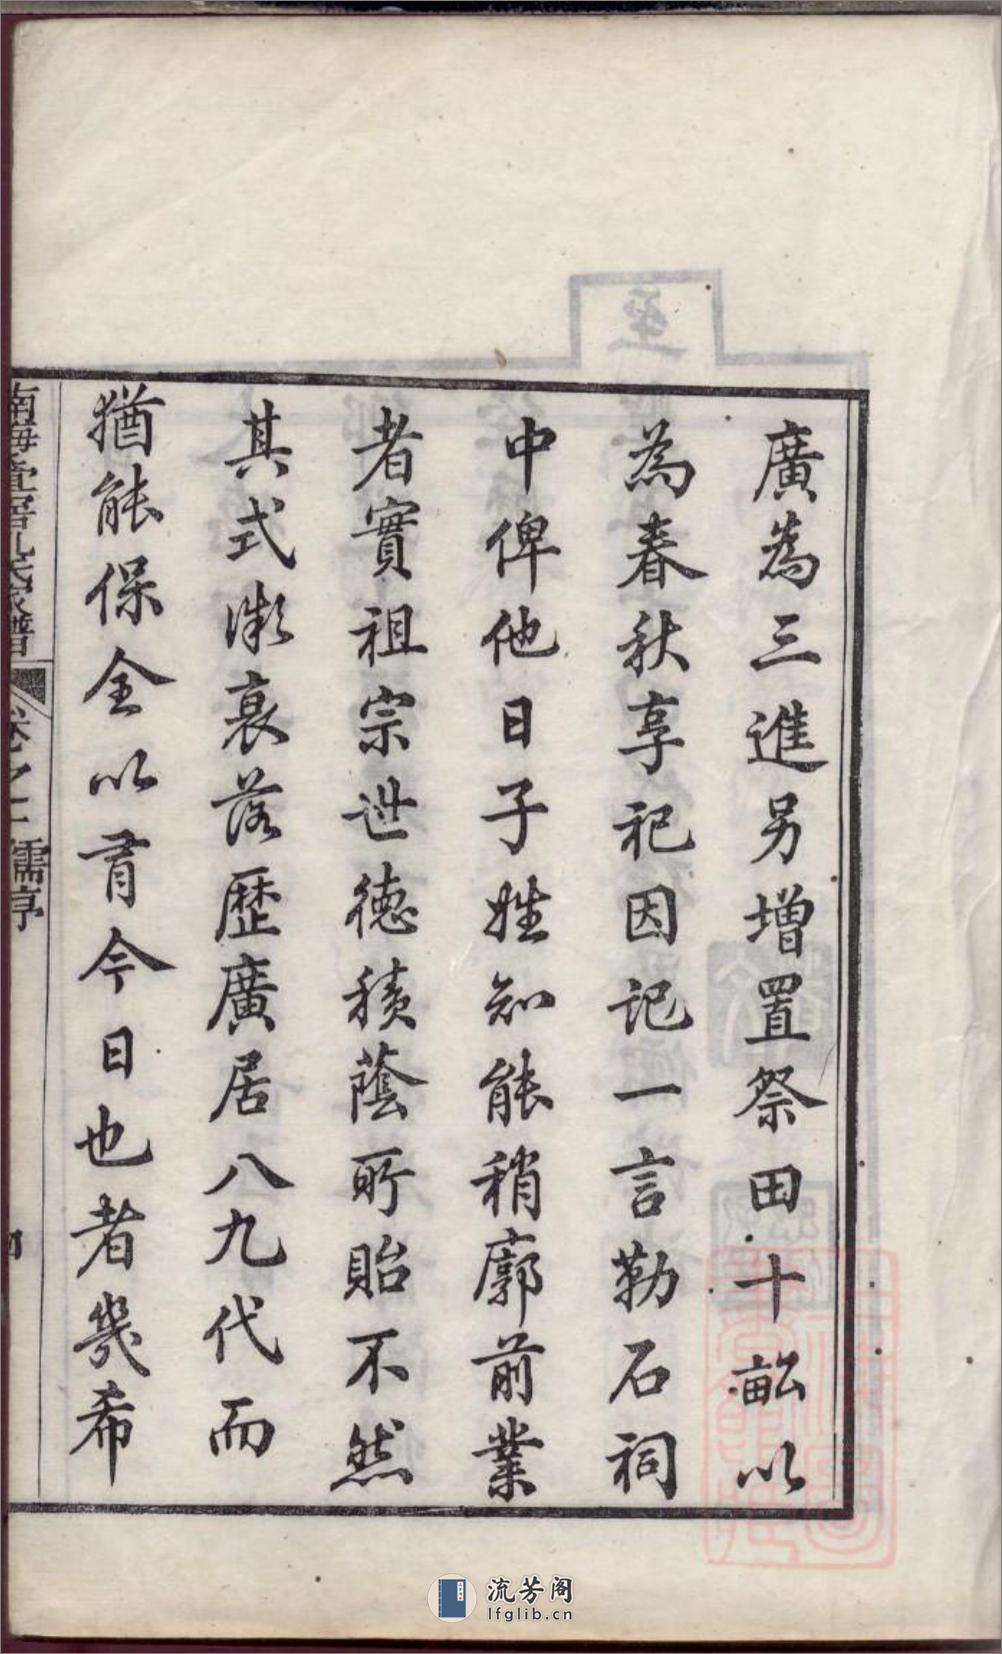 廣為三進另增置祭田十畝以
為春秋享祀因記一言勒石祠
中俾他日子姓知能稍廓前業
者實祖宗世德積蔭所貽不然
其式微衰落歷廣居八九代而
猶能保全以有今日也者幾希
南海疊滘孔氏家譜 卷之一 舊序 四
流芳阁
lfglib.cn